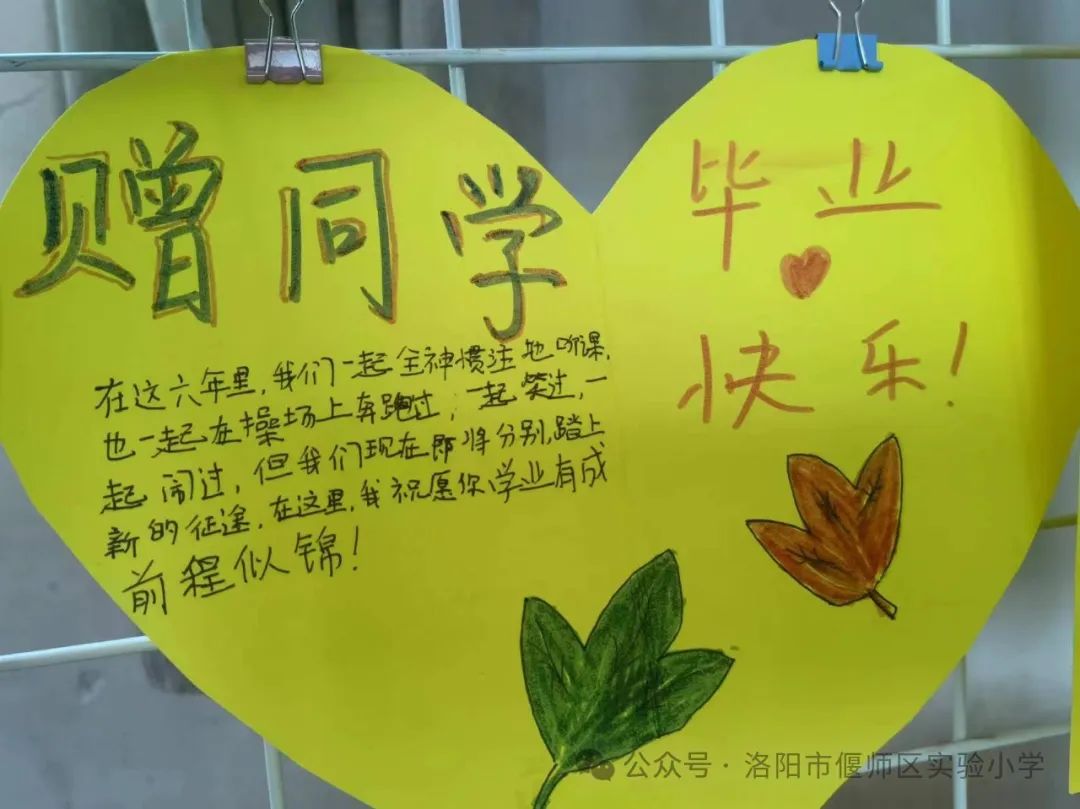 赠同学
在这六年里，我们一起全神惯注地听课，
也一起在操场上奔跑过；一起笑过，一
起闹过，但我们现在即将分别，踏上
新的征途，在这里，我祝愿你学业有成
前程似锦！
毕业
快乐！
公众号·洛阳市偃师区实验小学